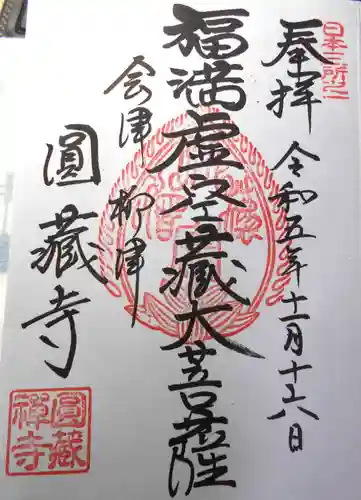 日本三所之一
奉拝
令和五年十一月十六八日
福満虚空藏大菩薩
会津
柳津
圓藏寺
圓藏
禅寺